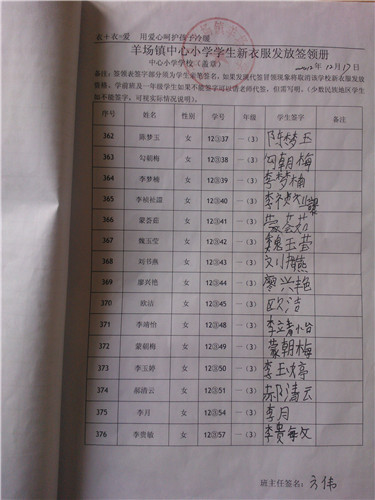 衣+衣=爱 用爱心呵护孩子冷暖
羊场镇中心小学学生新衣服发放签领册
中心小学学校(盖章) 2012年12月17日
备注:签领表签字部分须为学生亲笔签名,如果发现代签冒领现象将取消该学校新衣服发放
资格,学前班及一年级学生如果不能签字可以请老师代签,但需写明。(少数民族地区学生
如不能签字,可视实际情况说明)。
序号 姓名 性别 学号 年级 学生签字 备注
362 陈梦玉 女 12③37 一(3) 陈梦玉
363 勾朝梅 女 12③38 一(3) 勾朝梅
364 李梦楠 女 12③39 一(3) 李梦楠
365 李祯杜 女 12③40 一(3)
366 蒙荟茹 女 12③41 一(3) 蒙荟茹
367 魏玉莹 女 12③42 一(3) 魏玉莹
368 刘书燕 女 12③43 一(3) 刘书燕
369 廖兴艳 女 12③44 一(3) 廖兴艳
370 欧洁 女 12③47 一(3) 欧洁
371 李靖怡 女 12③48 一(3) 李靖怡
372 蒙朝梅 女 12③49 一(3) 蒙朝梅
373 李玉婷 女 12③50 一(3) 李玉婷
374 郝清云 女 12③51 一(3) 郝清云
375 李月 女 12③54 一(3) 李月
376 李贵敏 女 12③57 一(3) 李贵敏
班主任签名: 方伟